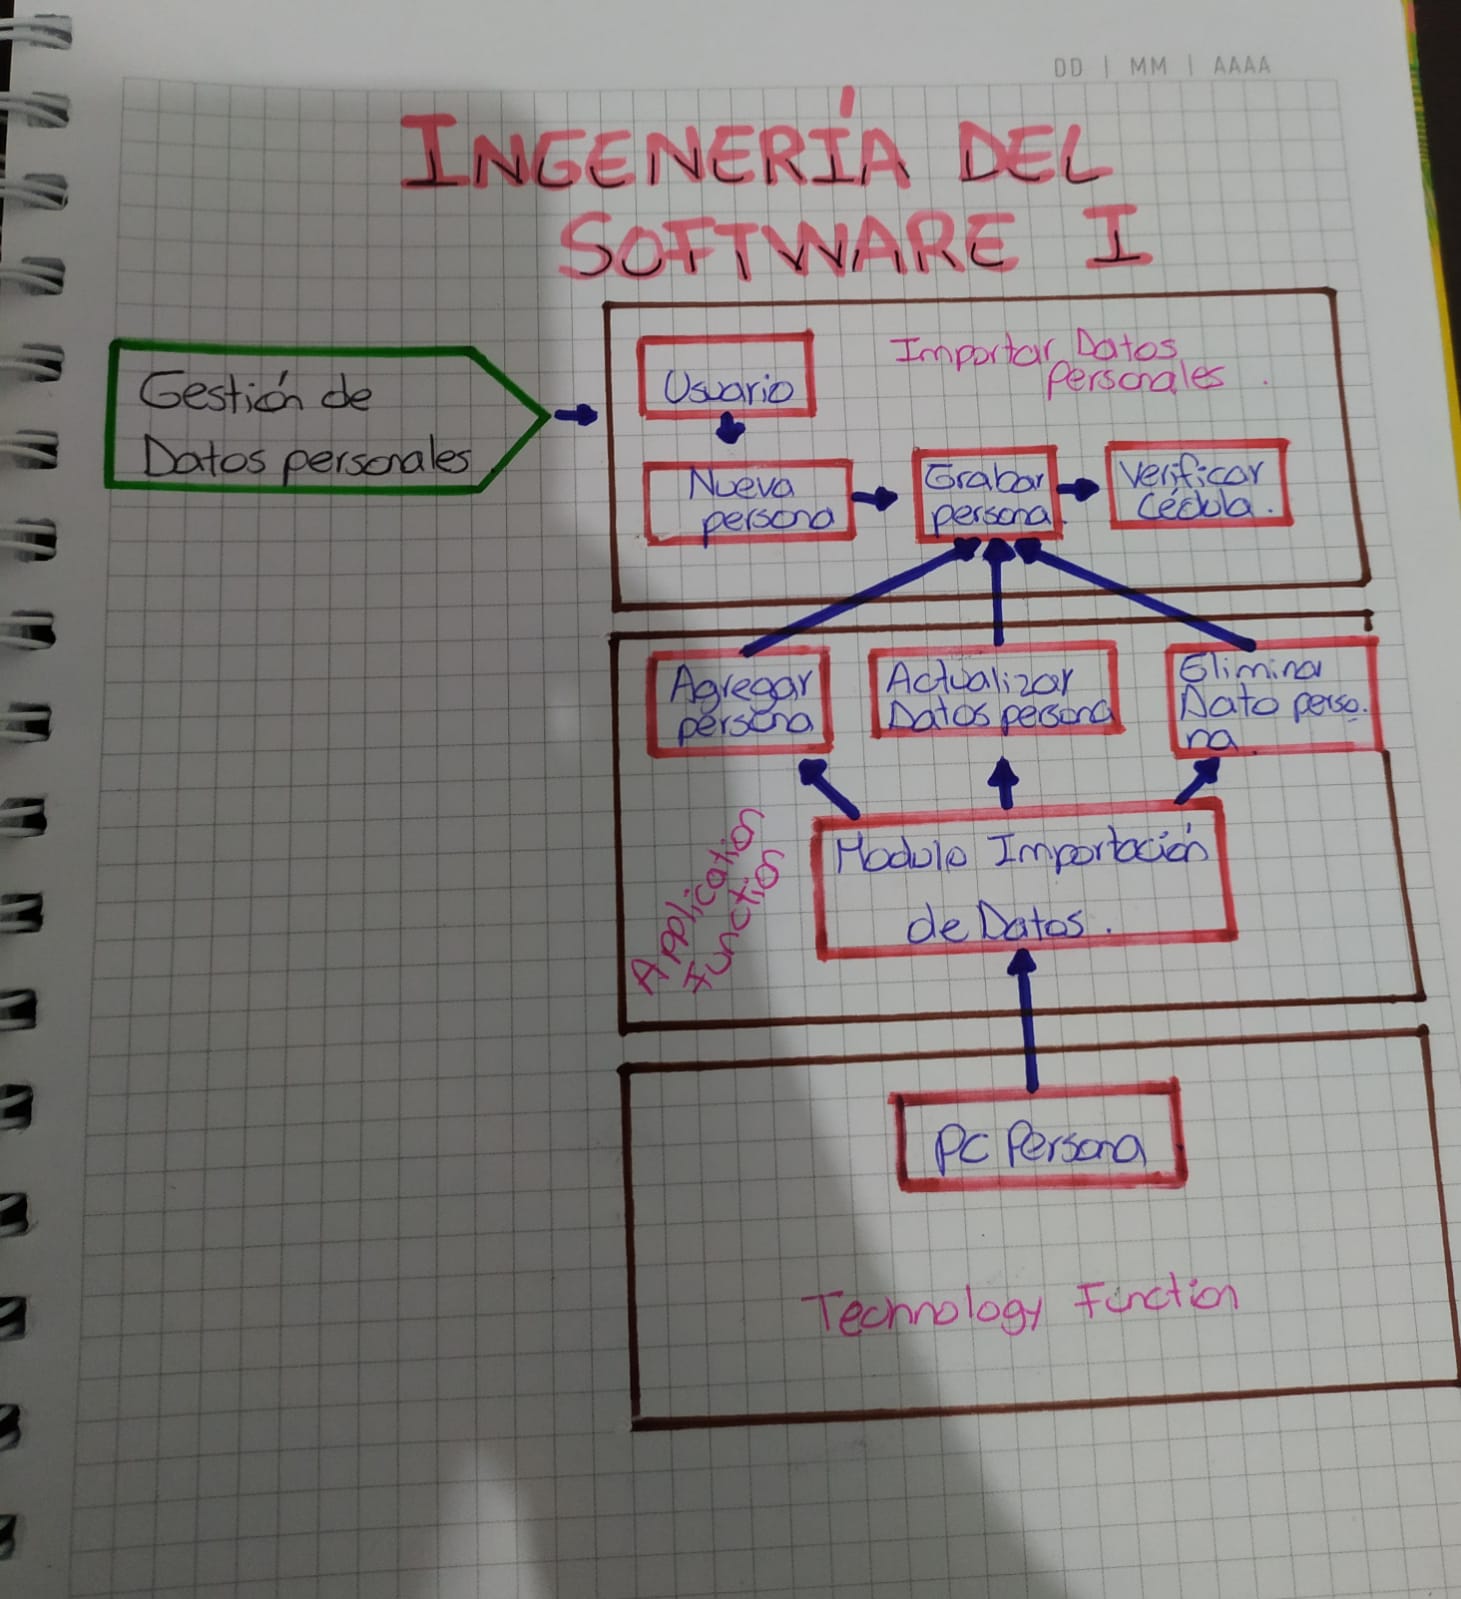 DD | MM | AAAA
INGENERÍA DEL
SOFTWARE I
Gestión de
Datos personales
Importar Datos
Personales.
Usuario
Nueva
persona
Grabar
persona.
Verificar
Cédula.
Agregar
persona
Actualizar
Datos persona
Eliminar
Dato perso.
na.
Application
Function
Modulo Importación
de Datos.
PC Persona
Technology Function